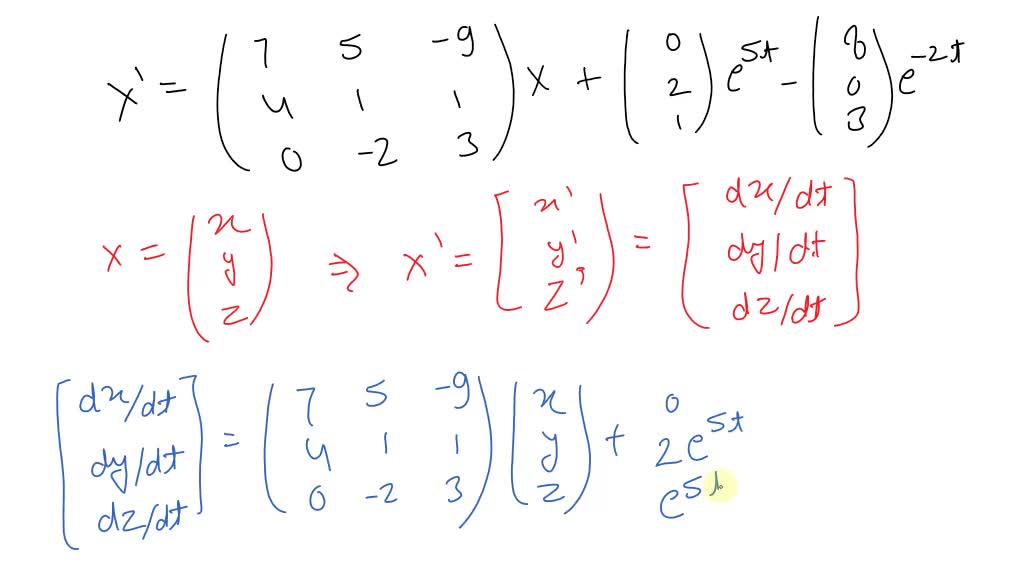 x' = ( 7 5 -9
4 1 1
0 -2 3 ) x + ( 0
2
1 ) e^5t - ( 8
0
3 ) e^-2t
x = ( x
y
z ) ⇒ x' = [ x'
y'
z' ) = [ dx/dt
dy/dt
dz/dt ]
[ dx/dt
dy/dt
dz/dt ] = ( 7 5 -9
4 1 1
0 -2 3 ) ( x
y
z ) + 0
2e^5t
e^5t